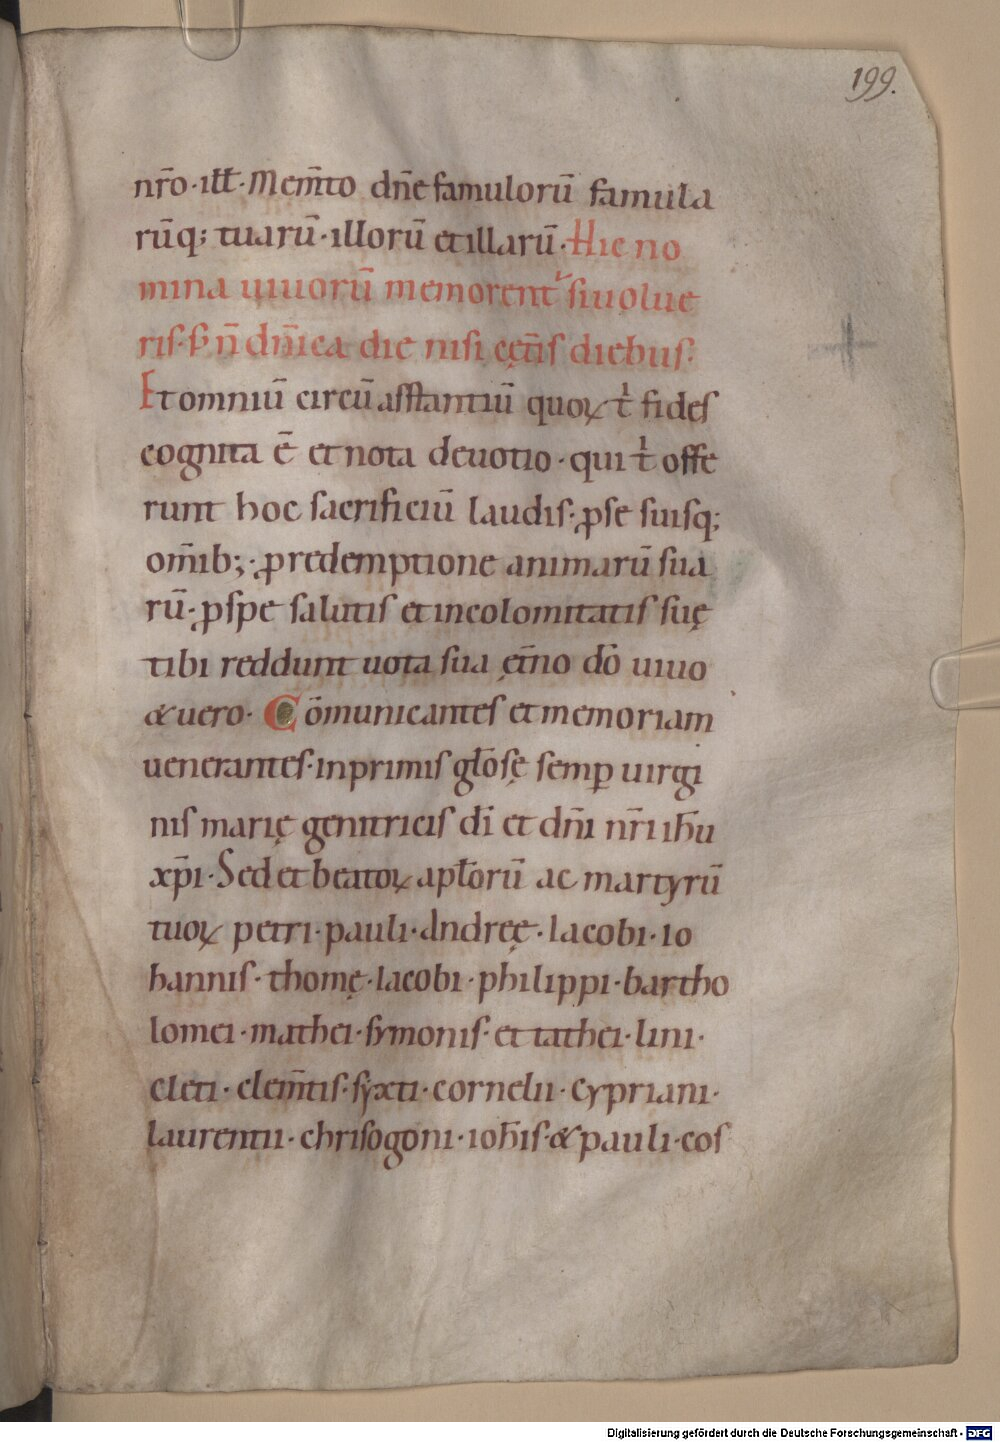 199.
nr̄o · ill̄ · Mem̄to dn̄e famulorū famula
rūq; tuarū · illorū et illarū · Hic no
mina uiuorū memorent᷑ si uolue
ris · s; n̄ dn̄ica die nisi cęt̄is diebus ·
Et omniū circūasstantiū quoꝝ t̄ fides
cognita ē et nota deuotio · qui t̄ offe
runt hoc sacrificiū laudis · ꝓ se suisq;
om̄ib; · ꝓ redemptione animarū sua
rū · ꝓ spe salutis et incolomitatis suę
tibi reddunt uota sua ęt̄no dō uiuo
& uero · Cōmunicantes et memoriam
uenerantes · inprimis gl̄osę semꝑ uirgi
nis marię genitricis dī et dn̄i nr̄i ih̄u
xp̄i · Sed et beatoꝝ apl̄orū ac martyrū
tuoꝝ petri · pauli · Andreę · Iacobi · Io
hannis · thomę · Iacobi · philippi · bartho
lomei · mathei · symonis · et tathei · lini ·
cleti · clem̄tis · syxti · cornelii · cypriani ·
laurentii · chrisogoni · ioh̄is · & pauli · cos
Digitalisierung gefördert durch die Deutsche Forschungsgemeinschaft - DFG